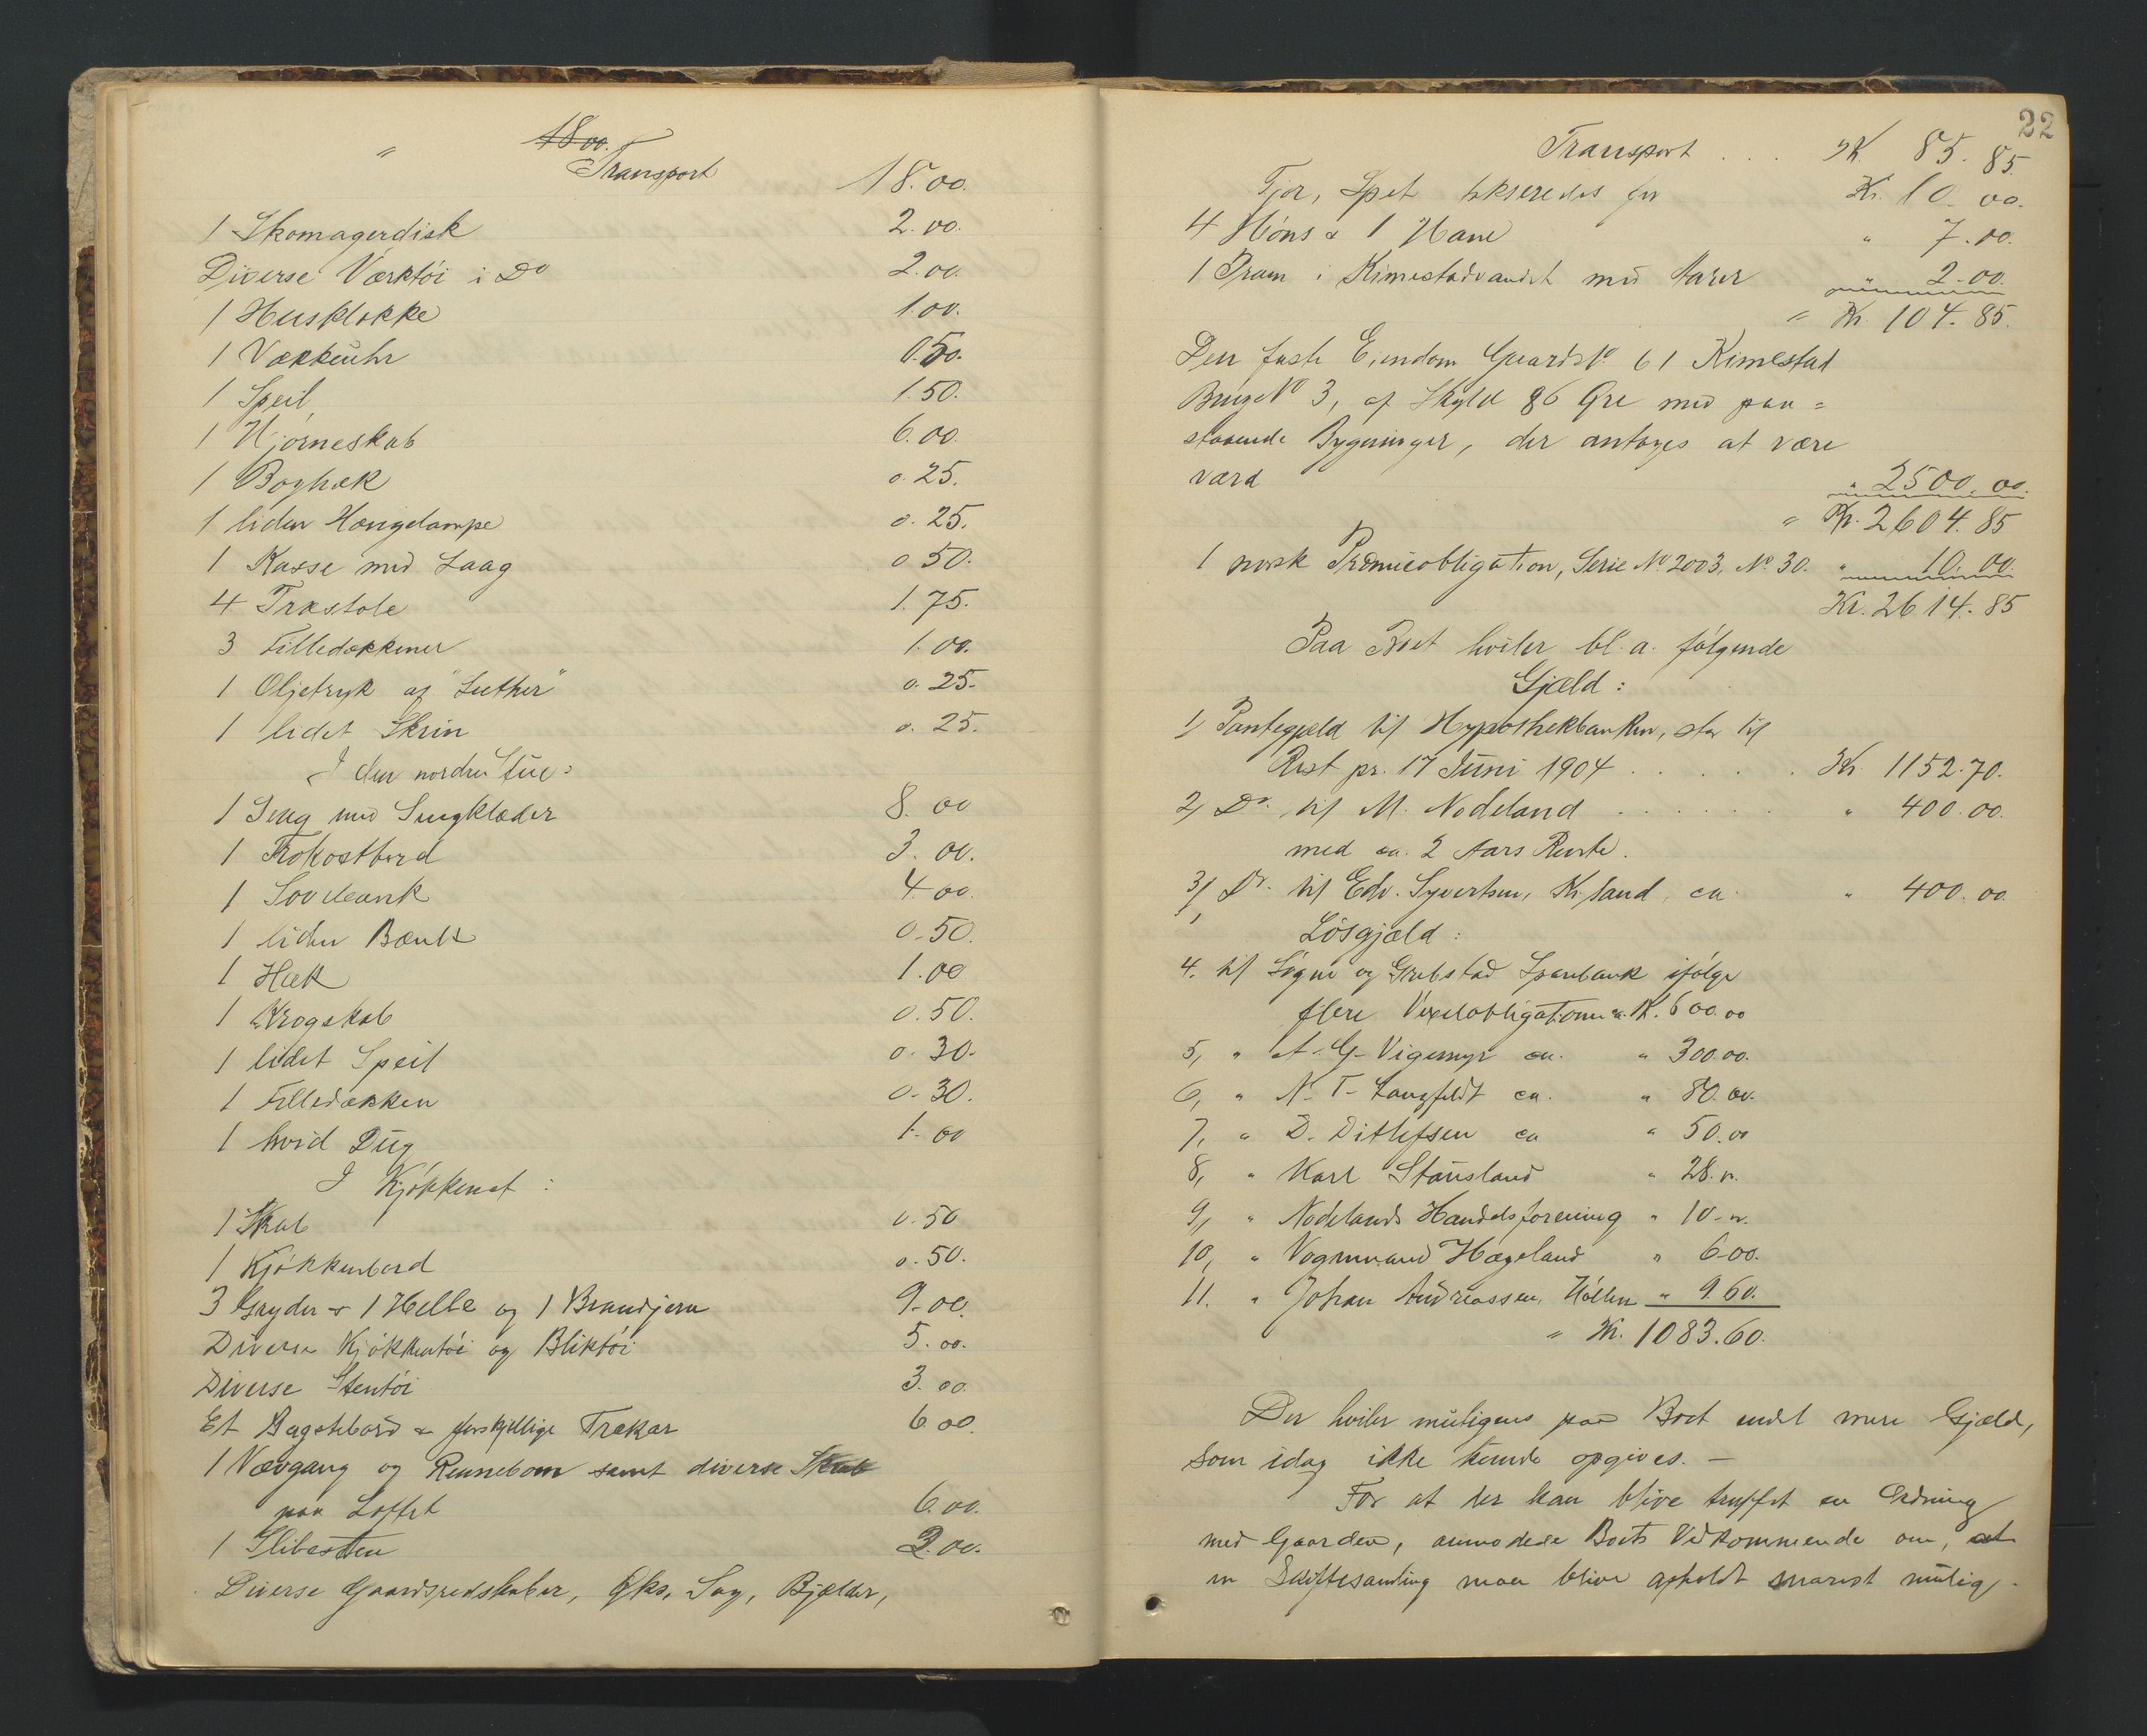 " 18 00.
Transport 18.00.
1 Skomagerdisk 2.00.
Diverse Værktøi i Do 2.00.
1 Husklokke 1.00.
1 Vækkeuhr 0.50.
1 Speil 1.50.
1 Hjørneskab 6.00.
1 Boghæk 0.25.
1 liden Hængelampe 0.25.
1 Kasse med Laag 0 50.
4 Træstole 1.75.
3 Filledækkener 1.00.
1 Oljetryk af "Luther" 0.25.
1 lidet Skrin 0.25.
I den nordre Stue:
1 Seng med Sengklæder 8.00
1 Frokostbord 3.00.
1 Sovebænk 4.00.
1 liden Bænk 0.50.
1 Hæk 1.00
1 Krogskab 0.50.
1 lidet Speil 0.30.
1 Filledækken 0.30.
1 hvid Dug 1.00
I Kjøkkenet:
1 Skab 0.50
1 Kjøkkenbord 0.50.
3 Gryder & 1 Helle og 1 Brandjern 9.00.
Diverse Kjøkkentøi og Bliktøi 5.00.
Diverse Stentøi 3.00.
Et Bagstebord & forskjellige Trækar 6.00.
1 Vævgang og Rennebom samt diverse Skrab
paa Loftet 6.00.
1 Slibesten 2.00.
Diverse Gaardsredskaber, Øks, Sag, Bjælder,
22
Transport . . . Kr. 85.85.
Tjor, Spet takseredes for Kr. 10.00.
4 Høns & 1 Hane " 7.00.
1 Pram i Kimestadvandet med Aarer " 2.00.
" Kr. 104.85.
Den faste Eiendom Gaards No 61 Kimestad
Brugs No 3, af Skyld 86 Øre med paa=
staaende Bygninger, der antages at være
værd " 2500.00.
" Kr. 2604.85
1 norsk Præmieobligation, Serie No 2003, No 30. " 10.00.
Kr. 2614.85
Paa Boet hviler bl. a. følgende
Gjæld:
1, Pantegjæld til Hypothekbanken, stor til
Rest pr. 17 Juni 1904 . . . . . . Kr. 1152.70.
2, Do. til M. Nodeland . . . . . . " 400.00.
med ca. 2 Aars Rente.
3, Do. til Edv. Syvertsen, Kr.sand, ca. " 400.00
Løsgjæld:
4. til Søgne og Greipstad Sparebank ifølge
flere Vexelobligationer ca. Kr. 600.00
5, " A. G. Vigemyr ca. " 300.00.
6, " N. T. Langfeldt ca. " 80.00.
7, " D. Ditlefsen ca " 50.00
8, " Karl Stausland " 28.".
9, " Nodelands Handelsforening " 10.".
10, " Vognmand Hægeland " 6.00.
11. " Johan Andreassen, Høllen " 9.60.
" Kr. 1083.60.
Der hviler muligens paa Boet endel mere Gjæld,
som idag ikke kunde opgives. —
For at der kan blive truffet en Ordning
med Gaarden, anmodede Boets Vedkommende om, at
en Skiftesamling maa blive afholdt snarest mulig.